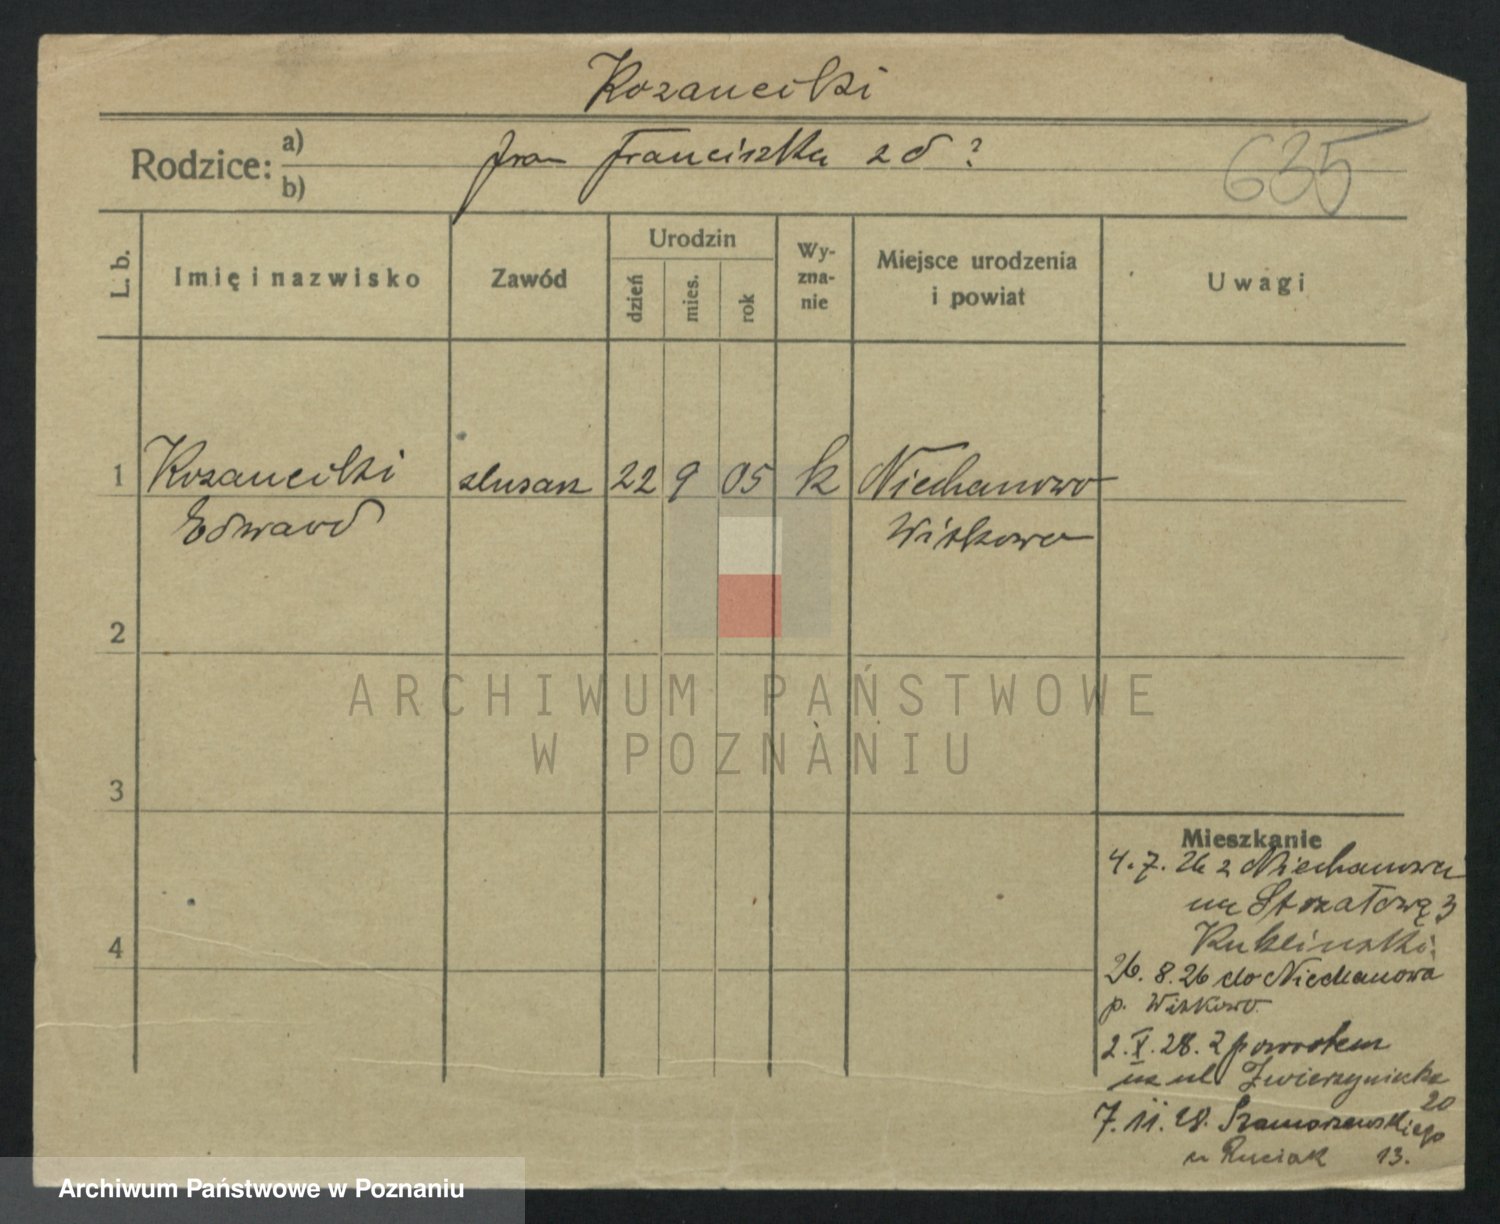 Kozancilki
Rodzice: a) Jan Franciszka z d ?
b)
635
L. b.
Imię i nazwisko
Zawód
Urodzin
dzień
mies.
rok
Wy-
zna-
nie
Miejsce urodzenia
i powiat
Uwagi
1 Kozancilki ślusarz 22 9 05 k Niechanowo
Edward Witkowo
2
3
4
ARCHIWUM PAŃSTWOWE
W POZNANIU
Mieszkanie
4.7.26 z Niechanowa
na Strzałową 3
Kuklinski.
26.8.26 do Niechanowa
p. Witkowo
2.X.28. z powrotem
na ul Zwierzyniecka
20
7.11.28. Szamarzewskiego
u Ruciak 13.
Archiwum Państwowe w Poznaniu